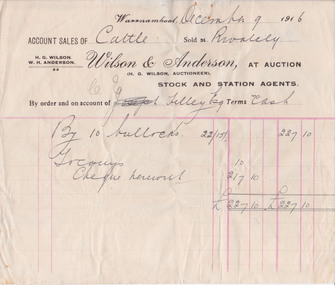 Warrnambool, December 9 1916
ACCOUNT SALES OF Cattle Sold at
H. G. WILSON.
W. H. ANDERSON.
Wilson & Anderson, AT AUCTION
(H. G. WILSON, AUCTIONEER).
STOCK AND STATION AGENTS.
By order and on account of Tilley Esq Terms Cash
By 10 bullocks 22/15/ 227 10
10
Cheque herewith 217 10
£ 227 10 £ 227 10